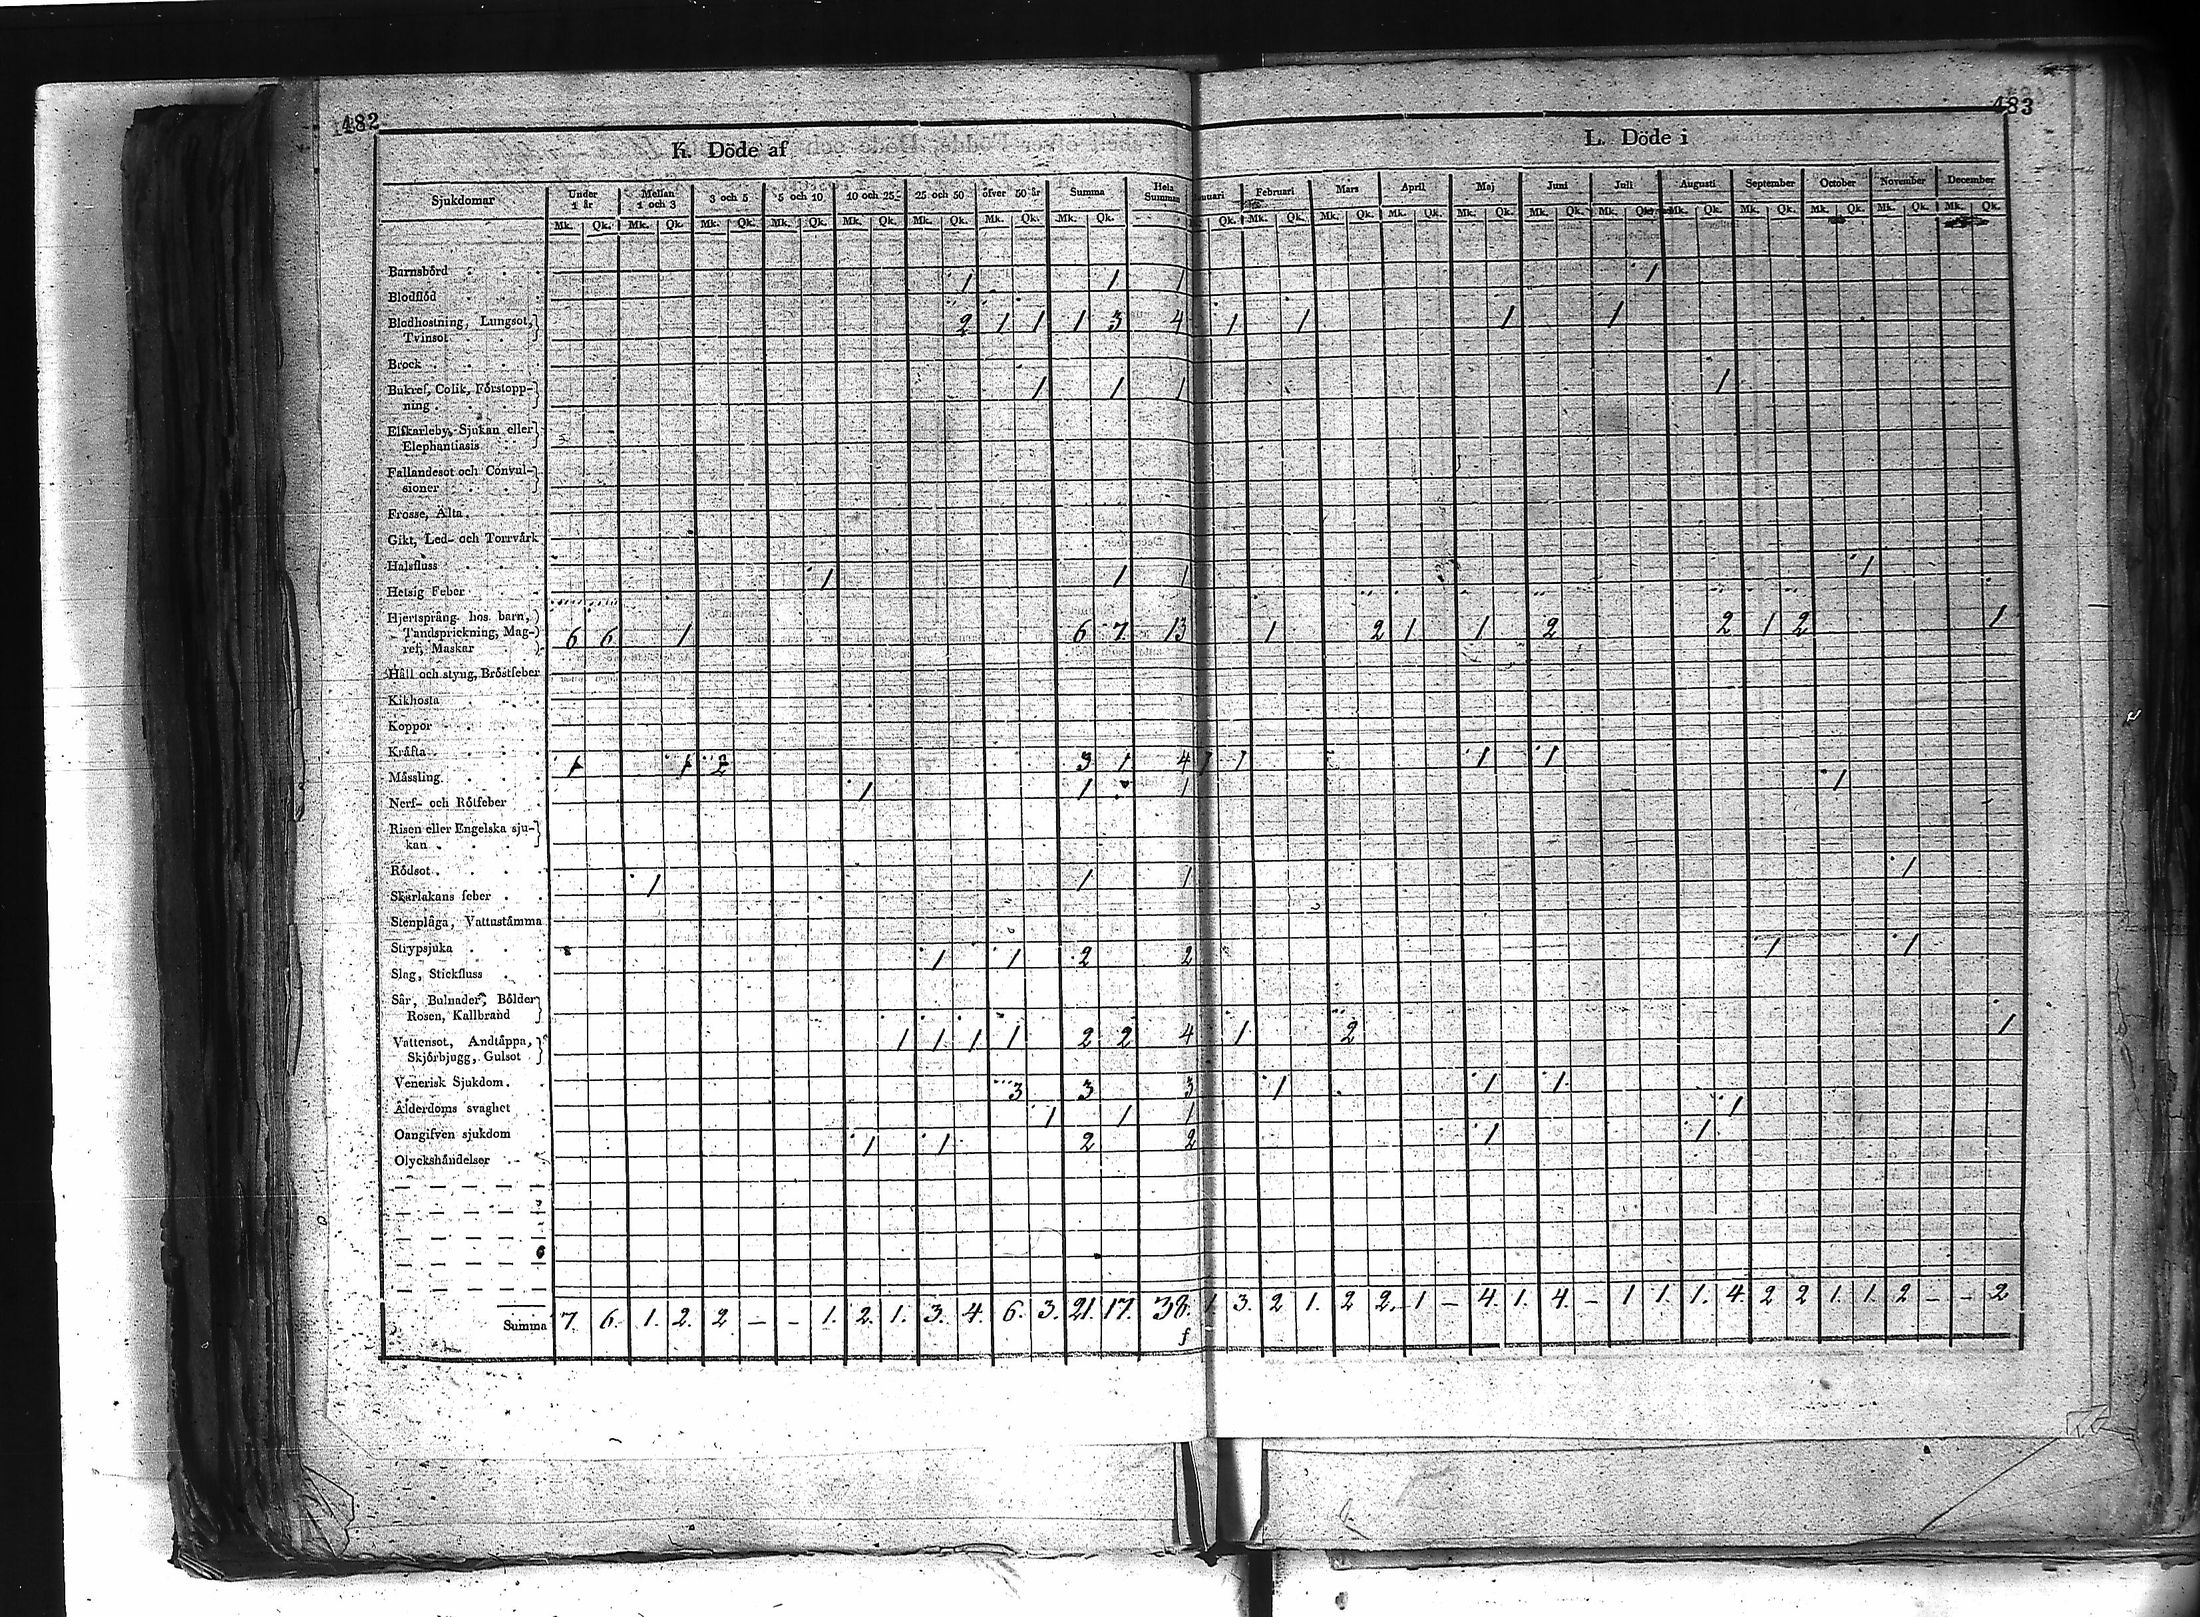 482
483
K. Döde af
L. Döde i
Sjukdomar Under 1 år Mellan 1 och 3 3 och 5 5 och 10 10 och 25 25 och 50 öfver 50 år Summa Hela Summan Februari Mars April Maj Juni Juli Augusti September October November December
Mk. Qk. Mk. Qk. Mk. Qk. Mk. Qk. Mk. Qk. Mk. Qk. Mk. Qk. Mk. Qk. Qk. Mk. Qk. Mk. Qk. Mk. Qk. Mk. Qk. Mk. Qk. Mk. Qk. Mk. Qk. Mk. Qk. Mk. Qk. Mk. Qk. Mk. Qk.
Barnsbörd 1 1 1 1
Blodflöd
Blodhostning, Lungsot, 2 1 1 1 3 4 1 1 1 1
Tvinsot
Brock
Bukref, Colik, Förstopp- 1 1 1 1
ning
Elfkarleby-Sjukan eller
Elephantiasis
Fallandesot och Convul-
sioner
Frosse, Älta
Gikt, Led- och Torrvärk
Halsfluss 1 1 1 1
Hetsig Feber
Hjertsprång hos barn,
Tandsprickning, Mag- 6 6 1 6 7 13 1 2 1 1 2 2 1 2 1
ref, Maskar
Håll och styng, Bröstfeber
Kikhosta
Koppor
Kräfta 1 1 2 3 1 4 1 1 1 1
Mässling 1 1 1 1
Nerf- och Rötfeber
Risen eller Engelska sju-
kan
Rödsot 1 1 1 1
Skarlakans feber
Stenplåga, Vattustämma
Strypsjuka 1 1 2 2 1 1
Slag, Stickfluss
Sår, Bulnader, Bölder
Rosen, Kallbrand
Vattensot, Andtäppa, 1 1 1 1 2 2 4 1 2 1
Skjörbjugg, Gulsot
Venerisk Sjukdom 3 3 3 1 1 1
Ålderdoms svaghet 1 1 1 1
Oangifven sjukdom 1 1 2 2 1 1
Olyckshändelser
Summa 7. 6. 1. 2. 2 – – 1. 2. 1. 3. 4. 6. 3. 21. 17. 38. 1 3. 2 1. 2 2. 1 – 4. 1. 4. – 1 1. 1. 4 2 2 1. 1. 2 – – 2